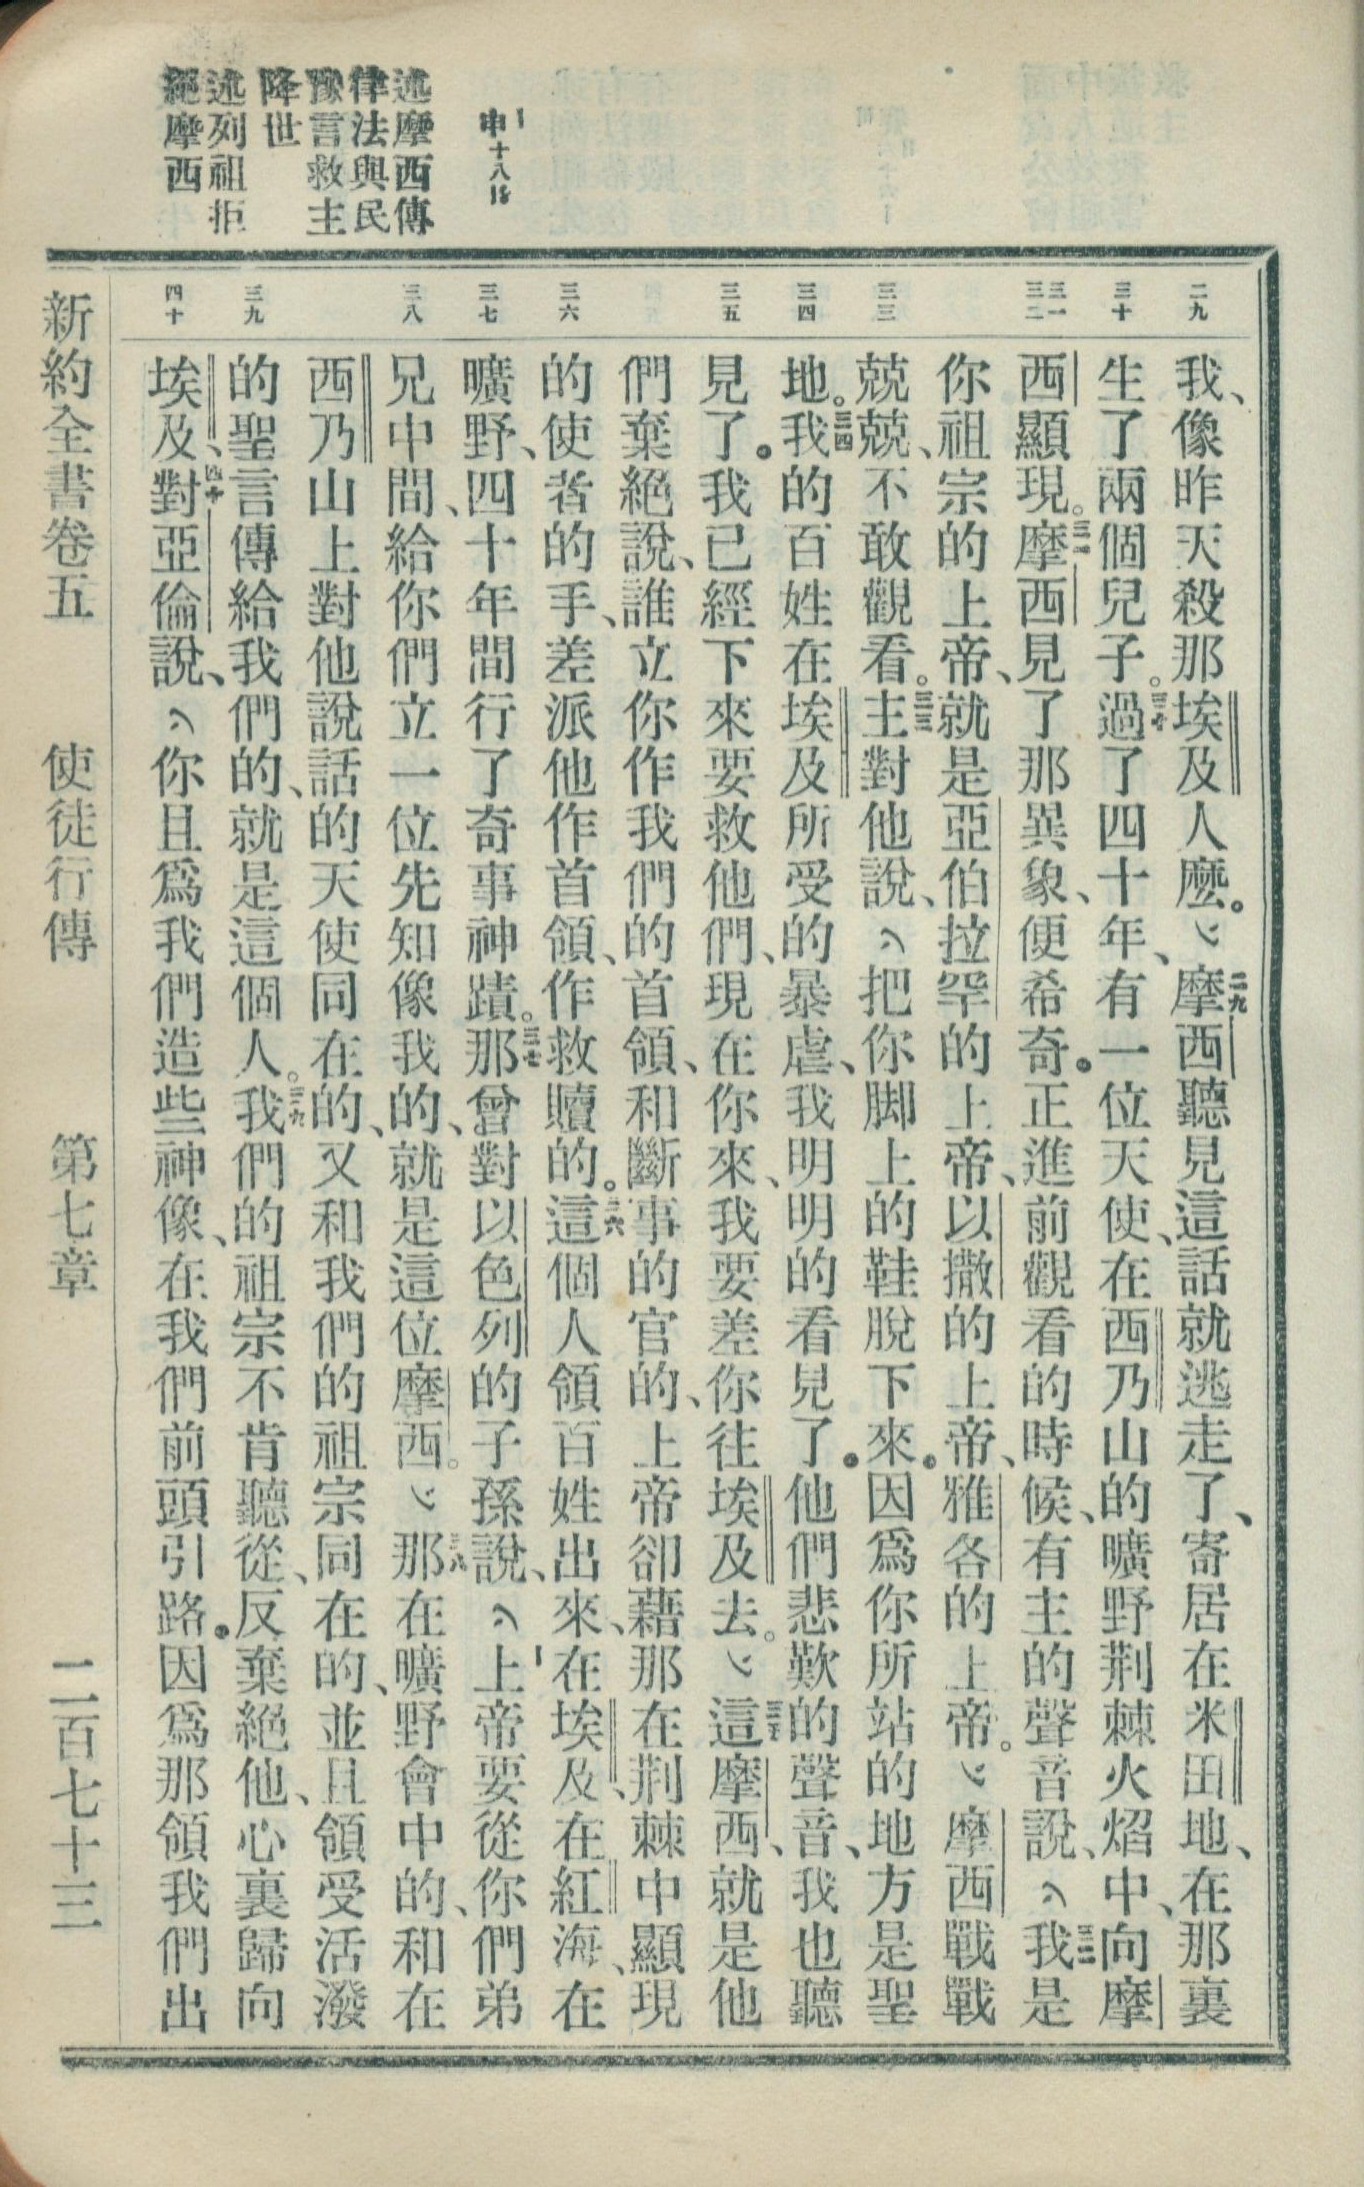 申十八15
述摩西傳
律法與民
豫言救主
降世
述列祖拒
絕摩西
二九
三十
三一
三二
三三
三四
三五
三六
三七
三八
三九
四十
我、像昨天殺那埃及人麼。﹂二九摩西聽見這話就逃走了、寄居在米田地、在那裏
生了兩個兒子。三十過了四十年、有一位天使、在西乃山的曠野荆棘火焰中、向摩
西顯現。三一摩西見了那異象、便希奇。正進前觀看的時候、有主的聲音說、﹁三二我是
你祖宗的上帝、就是亞伯拉罕的上帝、以撒的上帝、雅各的上帝。﹂摩西戰戰
兢兢、不敢觀看。三三主對他說、﹁把你脚上的鞋脫下來。因爲你所站的地方是聖
地。三四我的百姓在埃及所受的暴虐、我明明的看見了。他們悲歎的聲音、我也聽
見了。我已經下來要救他們、現在你來、我要差你往埃及去。﹂三五這摩西、就是他
們棄絕說、誰立你作我們的首領、和斷事的官的、上帝卻藉那在荆棘中顯現
的使者的手、差派他作首領、作救贖的。三六這個人領百姓出來、在埃及、在紅海、在
曠野、四十年間行了奇事神蹟。三七那曾對以色列的子孫說、﹁1上帝要從你們弟
兄中間、給你們立一位先知像我的、就是這位摩西。﹂三八那在曠野會中的、和在
西乃山上對他說話的天使同在的、又和我們的祖宗同在的、並且領受活潑
的聖言傳給我們的、就是這個人。三九我們的祖宗不肯聽從、反棄絕他、心裏歸向
埃及、四十對亞倫說、﹁你且爲我們造些神像、在我們前頭引路。因爲那領我們出
新約全書卷五　使徒行傳　第七章　二百七十三